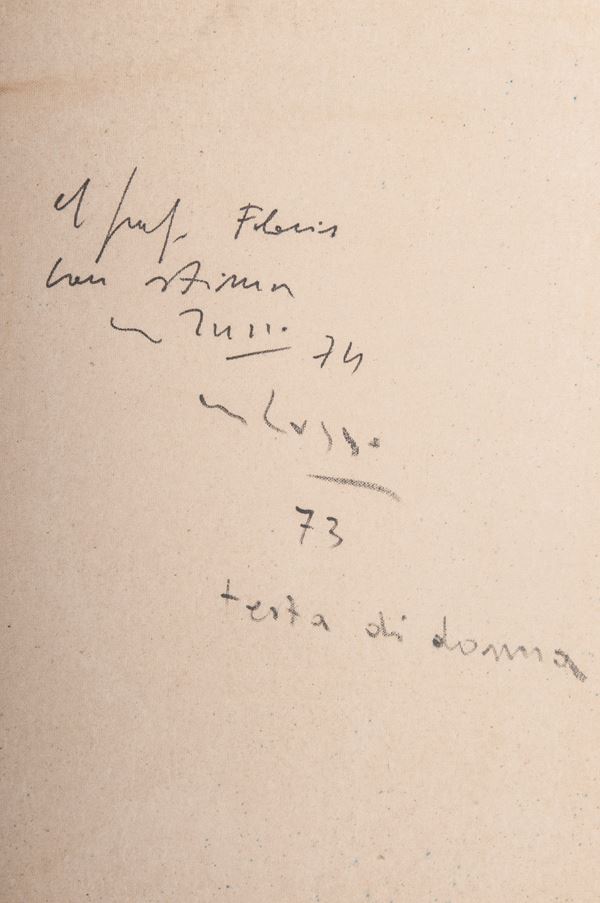 al prof. Floris
con stima
74
73
testa di donna